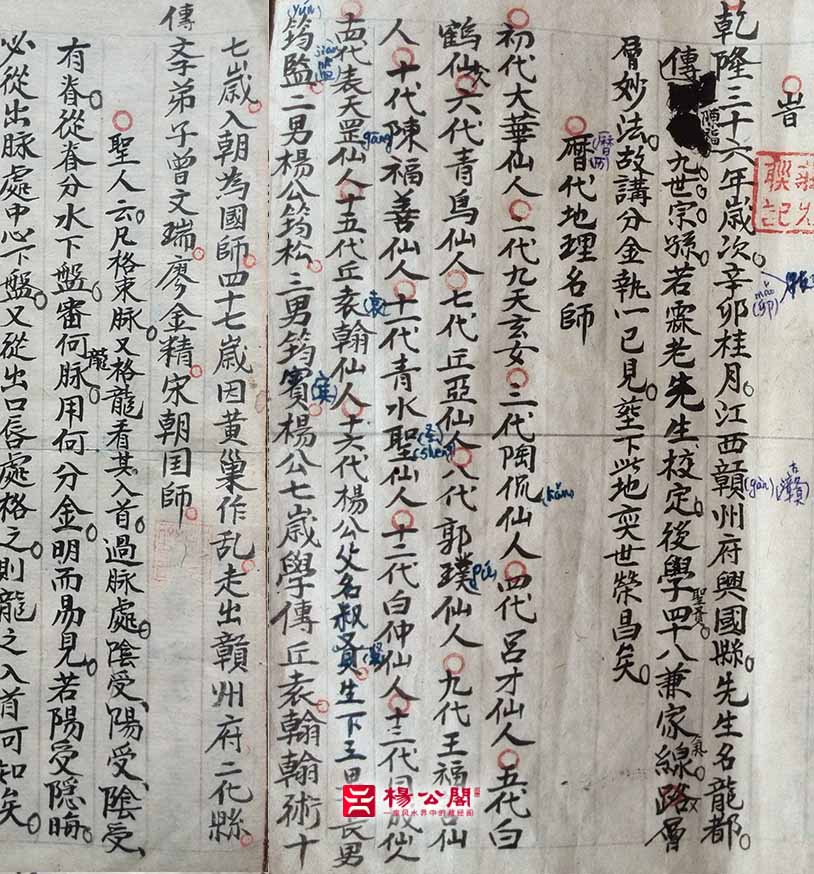 旹
乾隆三十六年歲次辛卯桂月江西贛州府興國縣先生名龍都
傳九世宗孫若霖老先生校定後學四十八兼家線路層
層妙法故講分金執一己見塟下此地奕世榮昌矣
曆代地理名師
初代大華仙人二代九天玄女三代陶侃仙人四代呂才仙人五代白
鶴仙六代青鳥仙人七代丘亞仙人八代郭璞仙人九代王福仙
人十代陳福善仙人十一代青水聖仙人十二代白仲仙人十三代成仙人
十四代袁天罡仙人十五代丘袁翰仙人十六代楊公父名叔賢生下三男長男
筠監二男楊公筠松三男筠賓楊公七歲學傳丘袁翰翰術十
七歲入朝為國師四十七歲因黃巢作乱走出贛州府二化縣
傳文李弟子曾文瑞廖金精宋朝国師
聖人云凡格来脉又格龍看其入首過脉處陰受陽受陰受
有脊從脊分水下盤審何脉用何分金明而易見若陽受隱晦
必從出脉處中心下盤又從出口唇處格之則龍之入首可知矣
楊公閣